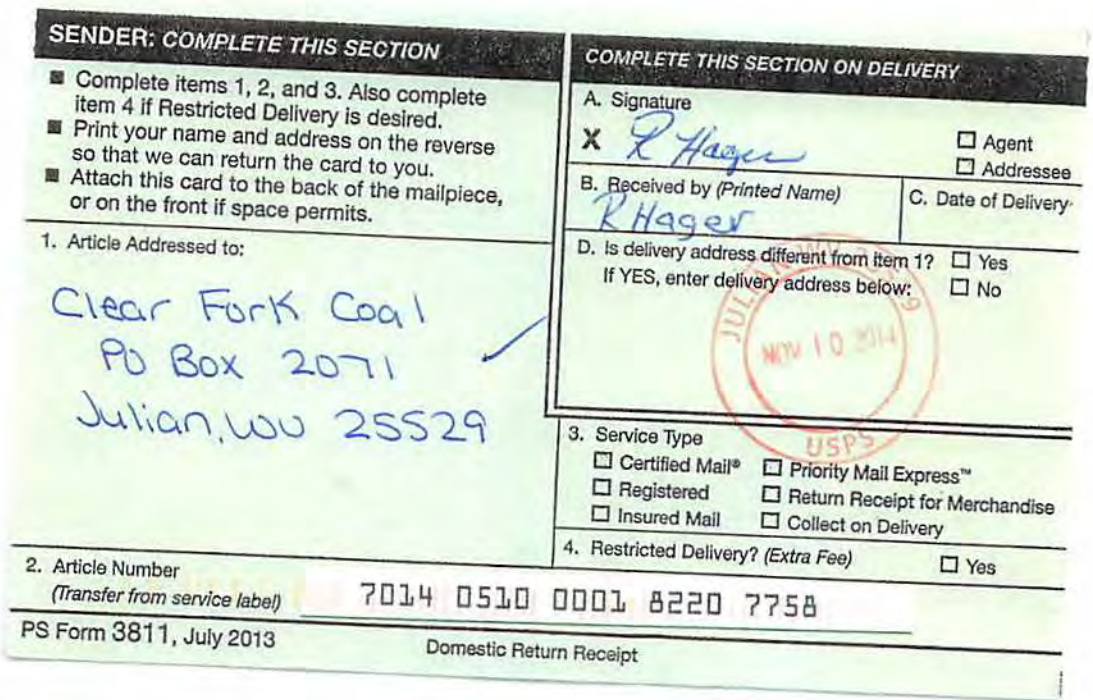 SENDER: COMPLETE THIS SECTION
■ Complete items 1, 2, and 3. Also complete
item 4 if Restricted Delivery is desired.
■ Print your name and address on the reverse
so that we can return the card to you.
■ Attach this card to the back of the mailpiece,
or on the front if space permits.
1. Article Addressed to:
Clear Fork Coal
PO Box 2071
Julian, WV 25529
2. Article Number
(Transfer from service label)
7014 0510 0001 8220 7758
PS Form 3811, July 2013
Domestic Return Receipt
COMPLETE THIS SECTION ON DELIVERY
A. Signature
X R Hager
☐ Agent
☐ Addressee
B. Received by (Printed Name)
R Hager
C. Date of Delivery
D. Is delivery address different from item 1? ☐ Yes
If YES, enter delivery address below: ☐ No
JULIAN WV 25529
NOV 10 2014
USPS
3. Service Type
☐ Certified Mail® ☐ Priority Mail Express™
☐ Registered ☐ Return Receipt for Merchandise
☐ Insured Mail ☐ Collect on Delivery
4. Restricted Delivery? (Extra Fee) ☐ Yes